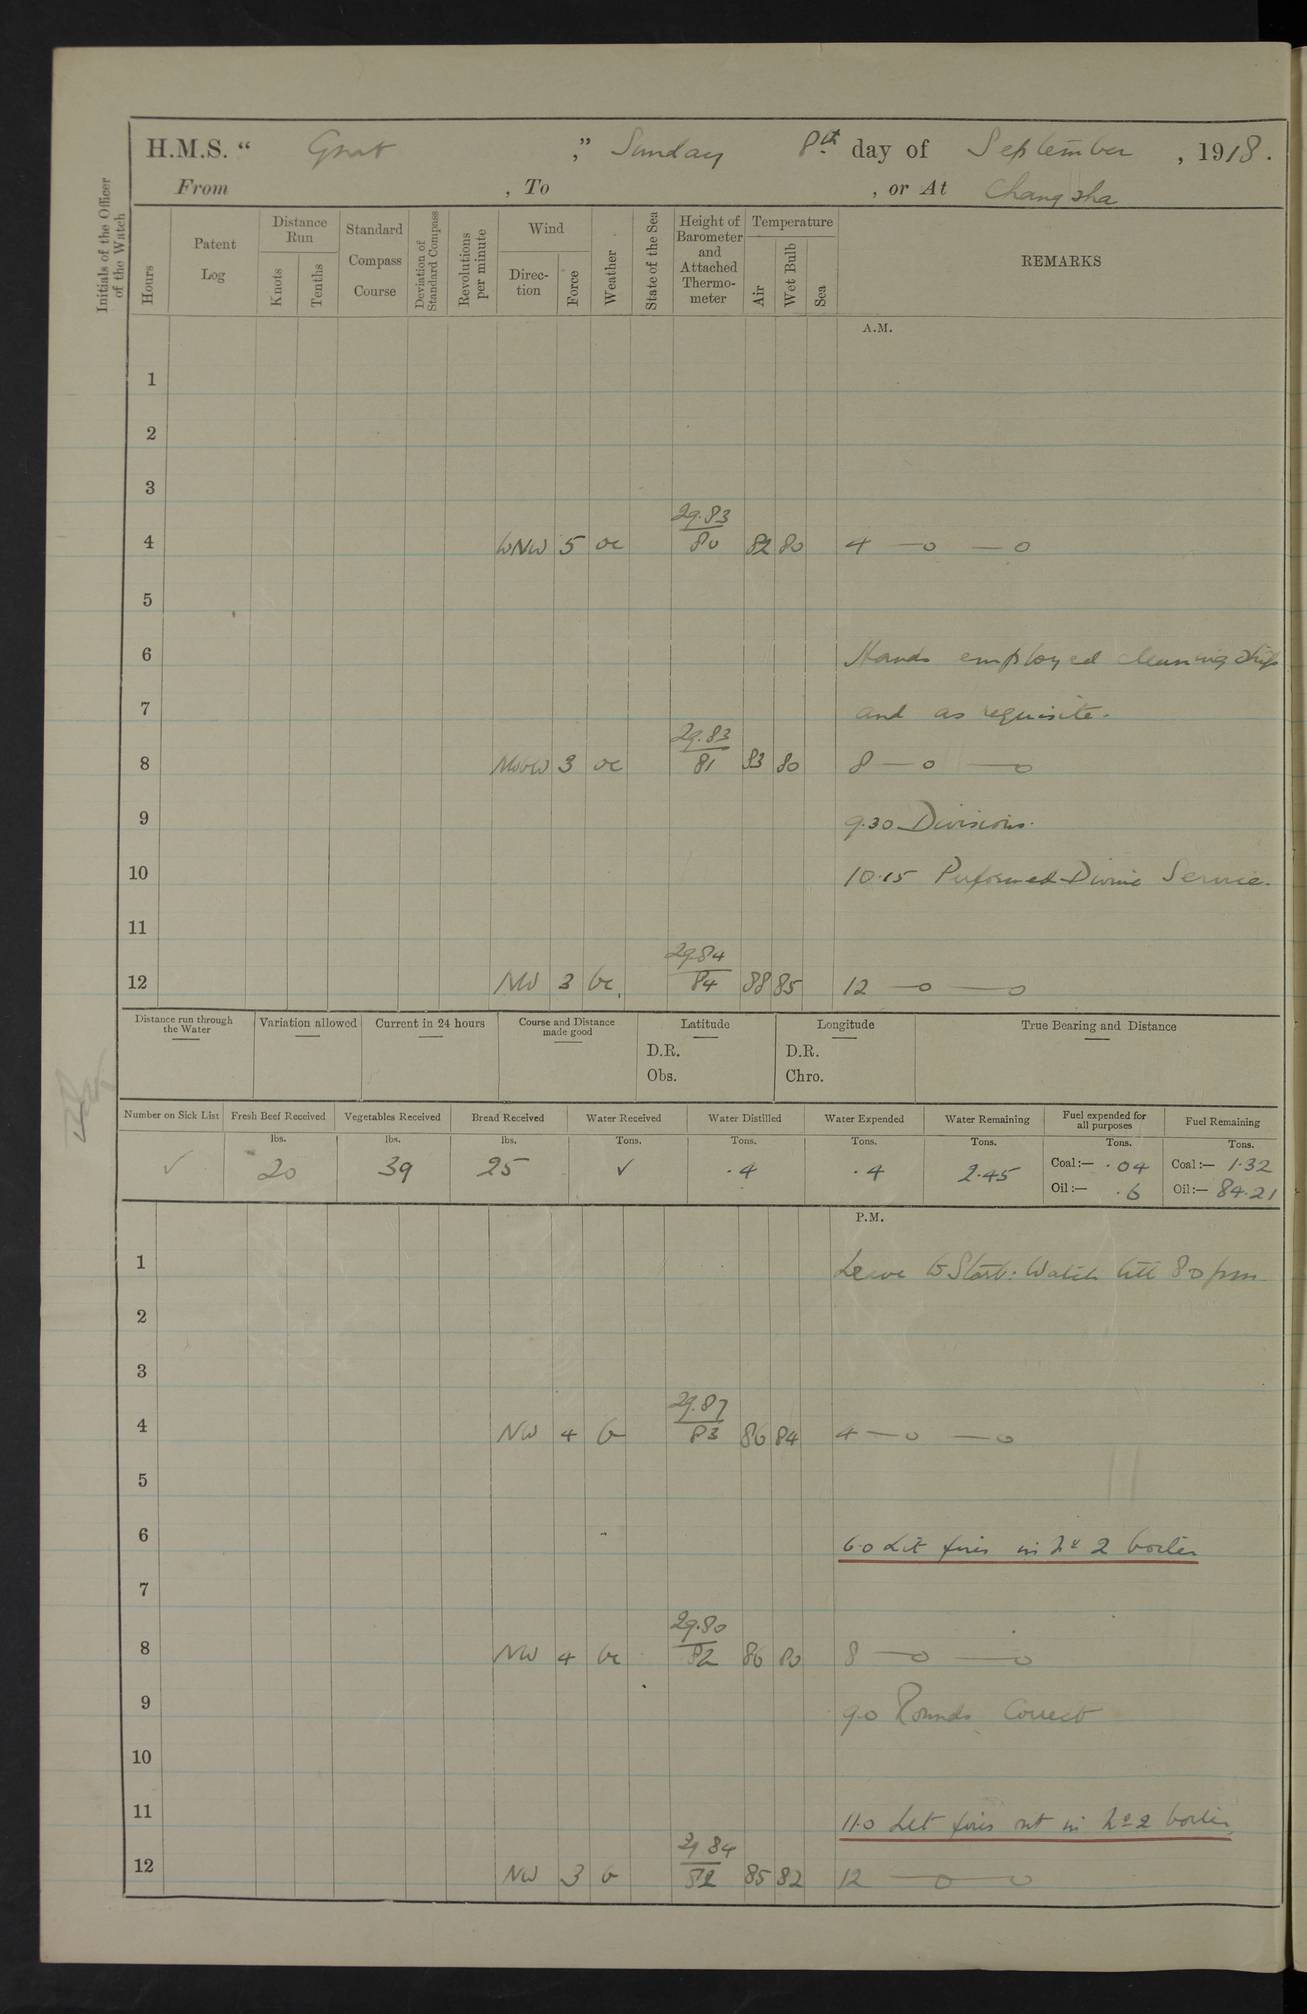 H.M.S. “ Gnat ,” Sunday 8th day of September , 1918.
From , To , or At Changsha
Initials of the Officer of the Watch
Hours
Patent Log
Distance Run
Knots
Tenths
Standard Compass Course
Deviation of Standard Compass
Revolutions per minute
Wind
Direc-tion
Force
Weather
State of the Sea
Height of Barometer and Attached Thermo-meter
Temperature
Air
Wet Bulb
Sea
REMARKS
A.M.
1
2
3
29.83
4 WNW 5 oc 80 82 80 4 —o —o
5
6 Hands employed cleaning ship
7 and as requisite.
29.83
8 3 oc 81 83 80 8 —o —o
9 9.30 Divisions.
10 10.15 Performed Divine Service.
11
29.84
12 NW 3 bc 84 88 85 12 —o —o
Distance run through the Water
Variation allowed
Current in 24 hours
Course and Distance made good
Latitude
D.R.
Obs.
Longitude
D.R.
Chro.
True Bearing and Distance
Number on Sick List Fresh Beef Received Vegetables Received Bread Received Water Received Water Distilled Water Expended Water Remaining Fuel expended for all purposes Fuel Remaining
lbs. lbs. lbs. Tons. Tons. Tons. Tons. Tons. Tons.
✓ 20 39 25 ✓ .4 .4 2.45 Coal:— .04 Coal:— 1.32
Oil:— .6 Oil:— 84.21
P.M.
1 Leave to Starb: Watch till 8.0 pm
2
3
29.87
4 NW 4 b 83 86 84 4 —o —o
5
6 6.0 Lit fires in No 2 boiler
7
29.80
8 NW 4 bc 82 86 80 8 —o —o
9 9.0 Rounds Correct
10
11 11.0 Let fires out in No 2 boiler
29 84
12 NW 3 b 82 85 82 12 —o —o